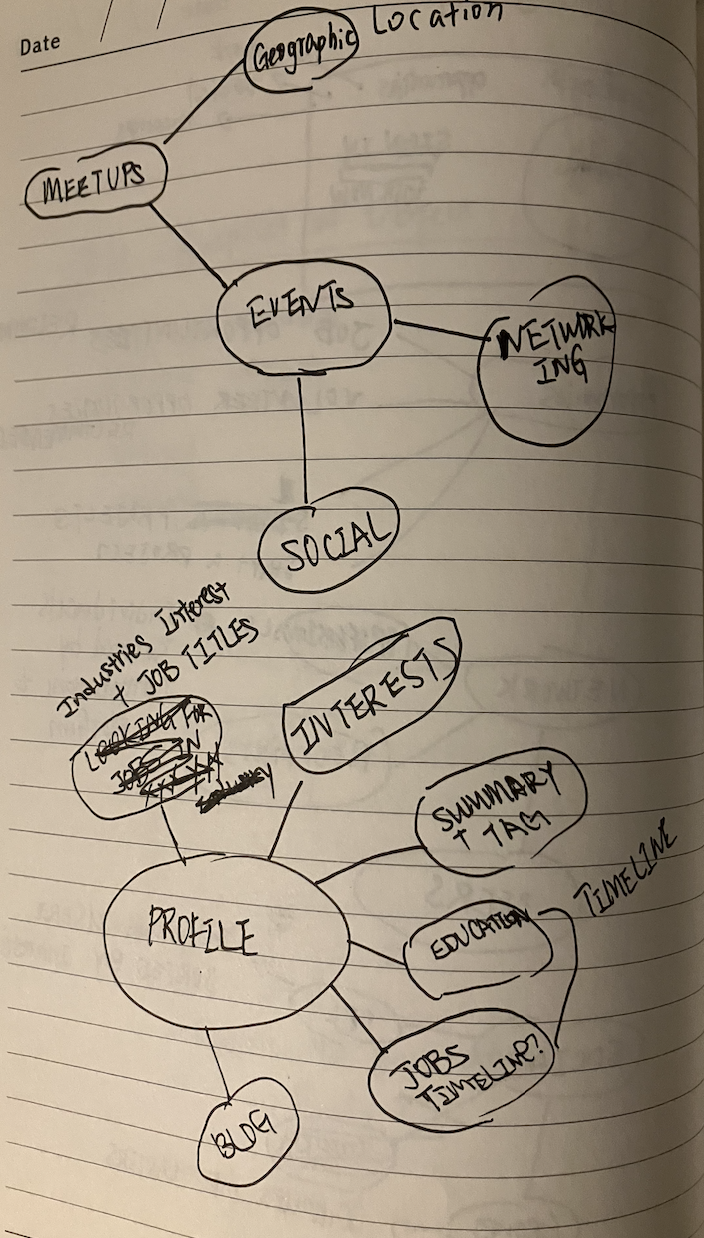 Date
Geographic Location
MEETUPS
EVENTS
NETWORK
ING
SOCIAL
Industries Interest
+ JOB TITLES
LOOKING FOR
JOBS IN
INTERESTS
SUMMARY
+ TAG
PROFILE
EDUCATION
TIMELINE
JOBS
TIMELINE?
BLOG